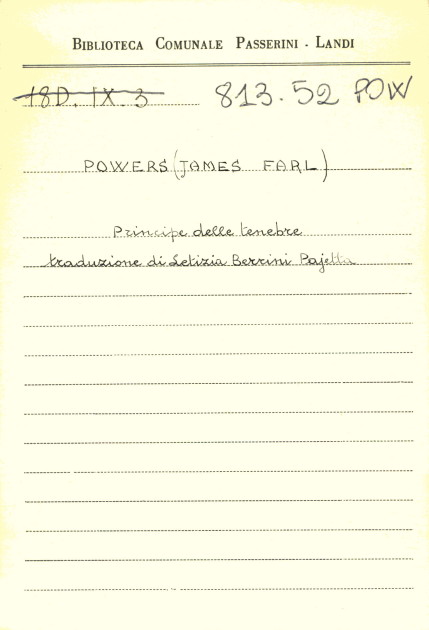 BIBLIOTECA COMUNALE PASSERINI - LANDI
18D. IX. 3 813.52 POW
POWERS (JAMES FARL)
Principe delle tenebre
traduzione di Letizia Berrini Pajetta